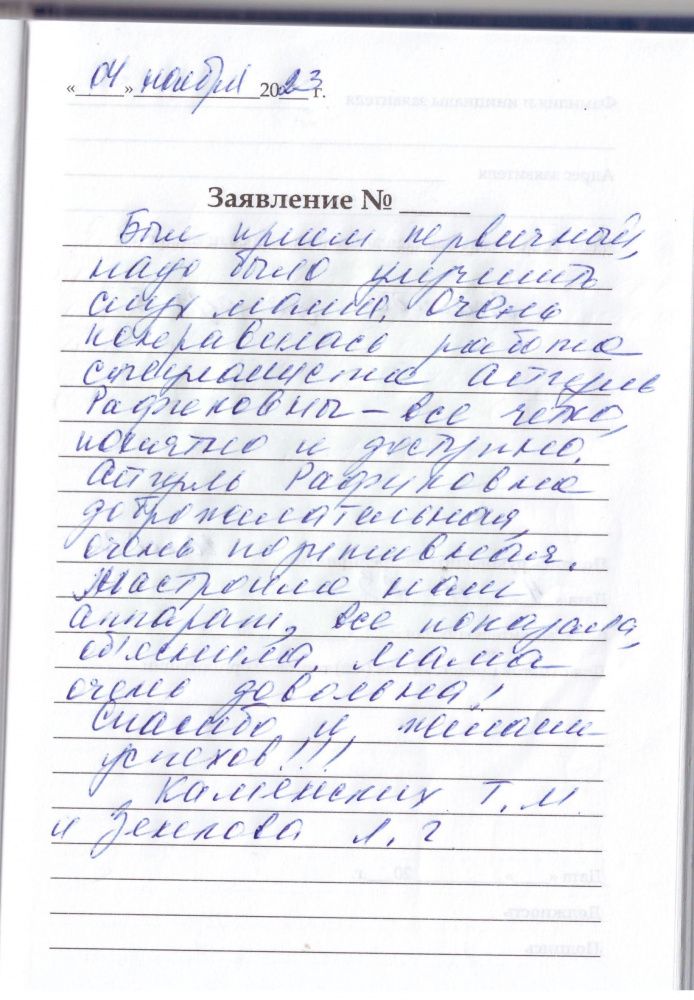 « 04 » ноября 2023 г.
Заявление № ____
Был прием первичный,
надо было улучшить
слух мамы. Очень
понравилась работа
специалиста Айгуль
Рафиковны – все четко,
понятно и доступно.
Айгуль Рафиковна
доброжелательная,
очень позитивная.
Настроила нам
аппарат, все показала,
объяснила. Мама
очень довольна!
Спасибо и желаем
успехов!!!
Каменских Т. М.
и л. г.